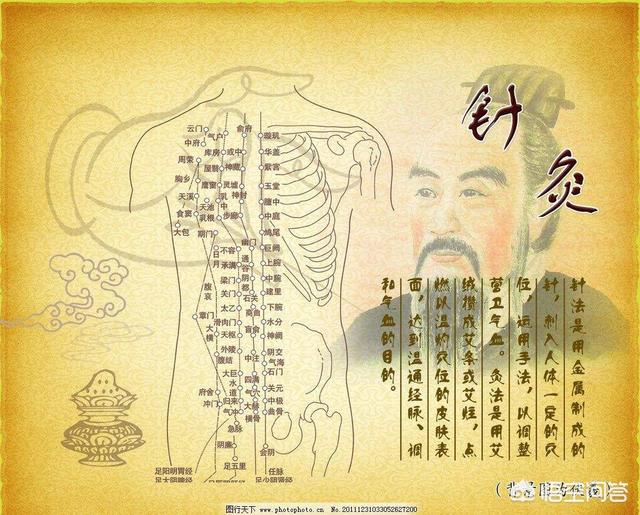 针灸
针法是用金属制成的
针，刺入人体一定的穴
位，运用手法，以调整
营卫气血。灸法是用艾
绒成艾条或艾炷，点
燃以温灼穴位的皮肤表
面，达到温通经脉、调
和气血的目的。
云门
中府
气户
俞府
璇玑
库房
或中
华盖
周荣
屋翳
神藏
紫宫
胸乡
膺窗
灵墟
玉堂
天溪
乳中
神封
膻中
食窦
天池
乳根
步廊
中庭
大包
期门
鸠尾
日月
不容
幽门
巨阙
承满
通谷
上脘
梁门
阴都
中脘
腹哀
关门
石关
建里
太乙
商曲
下脘
章门
滑肉门
水分
大横
天枢
肓俞
神阙
外陵
中注
阴交
腹结
气海
大巨
四满
石门
府舍
水道
气穴
关元
冲门
归来
大赫
中极
气冲
横骨
曲骨
急脉
阴廉
会阴
足五里
足阳明胃经
足太阴脾经
任脉
足少阴肾经
悟空问答
图行天下 www.photophoto.cn No.20111231033052627200